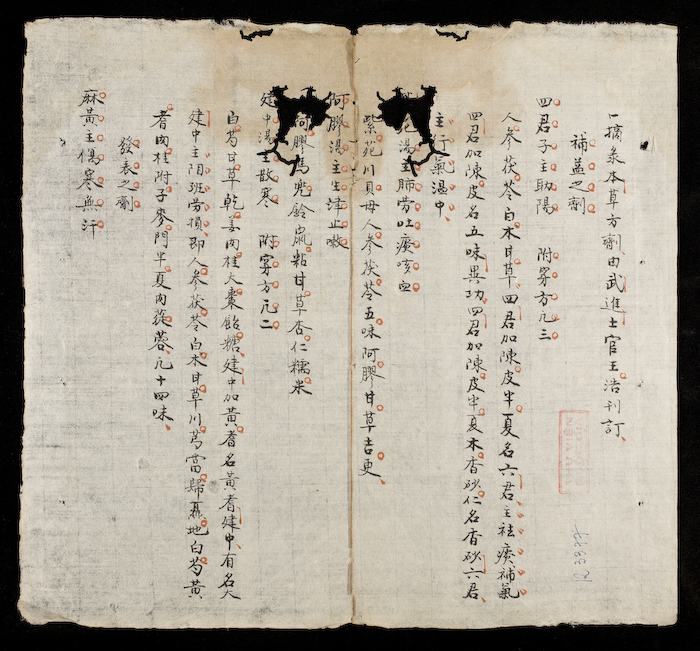 一摘彔本草方劑由武進士官王浩刊訂
補益之劑
四君子主助陽 附穿方凢三
人参茯苓白木甘草四君加陳皮半夏名六君主祛痰補氣
四君加陳皮名五味異功四君加陳皮半夏木香砂仁名香砂六君
主行氣温中
苑湯主肺劳吐痰咳血
紫苑川貝母人参茯苓五味阿膠甘草吉更
阿膠湯主生津止嗽
阿膠馬兜鈴鼠粘甘草杏仁糯米
建中湯主散寒 附穿方凢二
白芍甘草乾姜肉桂大棗飴糖建中加黃耆名黃耆建中有名大
建中主阴班劳損即人参茯苓白木甘草川芎當歸地白芍黃
耆肉桂附子麥門半夏肉蓯蓉凢十四味
發表之劑
麻黃主傷寒無汗
R 3377